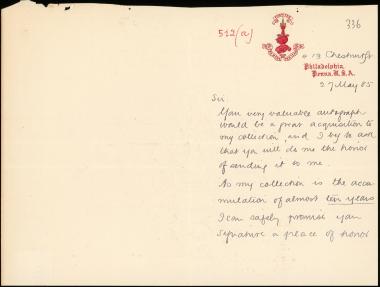 336
512(a)
13 Chestnut St
Philadelphia,
Penna. U.S.A.
27 May 85
Sir.
Your very valuable autograph
would be a great acquisition to
my collection, and I beg to ask
that you will do me the honor
of sending it to me.
As my collection is the accu
mulation of almost ten years
I can safely promise your
signature a place of honor